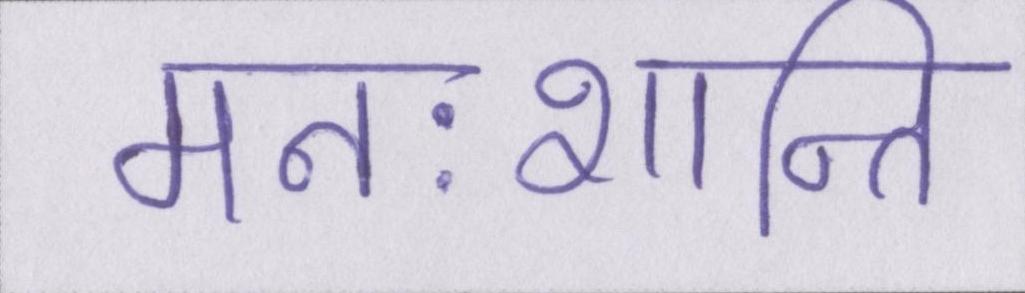 मनःशान्ति